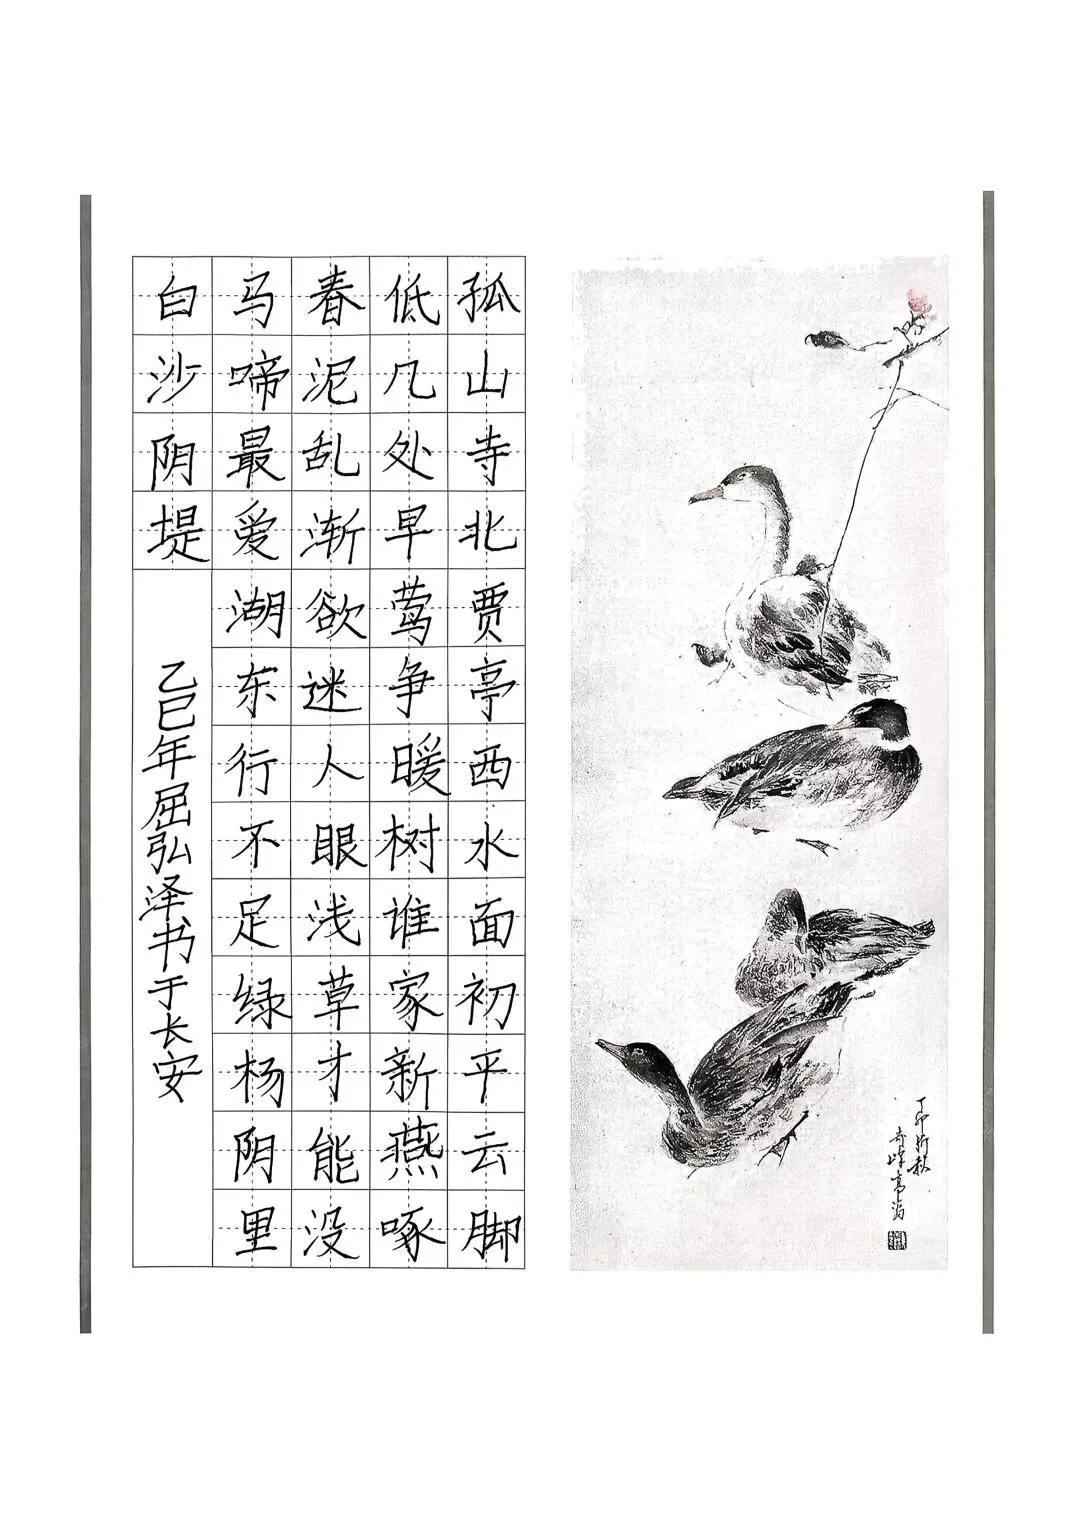 孤山寺北贾亭西水面初平云脚
低几处早莺争暖树谁家新燕啄
春泥乱渐欲迷人眼浅草才能没
马啼最爱湖东行不足绿杨阴里
白沙阴堤
乙巳年屈弘泽书于长安
丁卯新秋
奇峰高